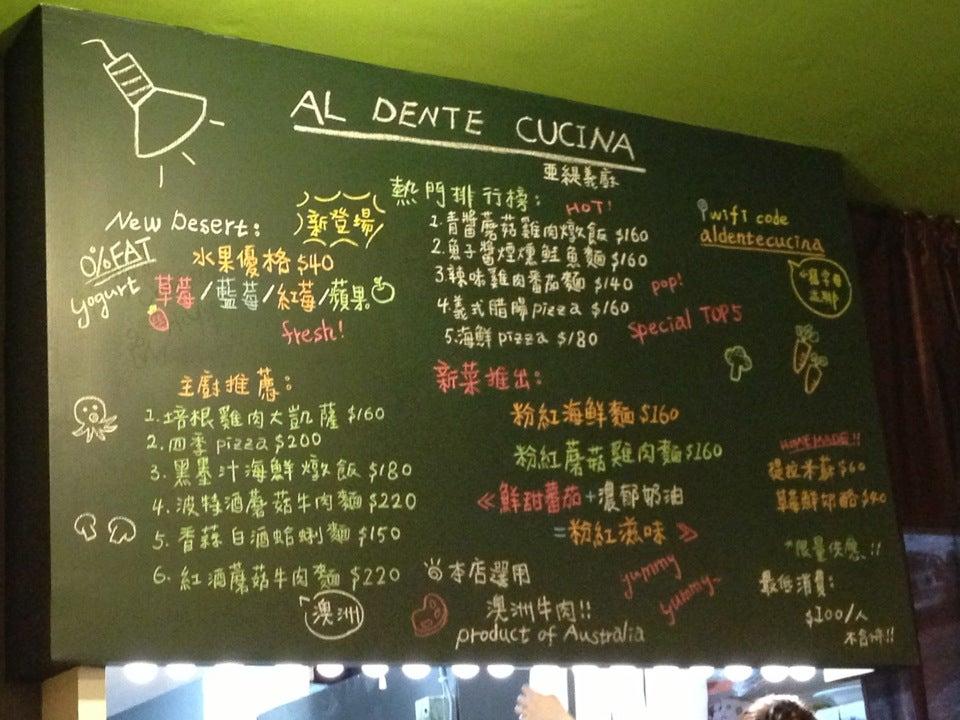 AL DENTE CUCINA
亞緹義廚
New Desert:
新登場
0% FAT
yogurt
水果優格 $40
草莓/藍莓/紅莓/蘋果
fresh!
熱門排行榜:
HOT!
1.青醬蘑菇雞肉燉飯 $160
2.魚子醬煙燻鮭魚麵 $160
3.辣味雞肉番茄麵 $140
pop!
4.義式腊腸pizza $160
5.海鮮pizza $180
special TOP5
wifi code
aldentecucina
主廚推薦:
1.培根雞肉大凱薩 $160
2.四季pizza $200
3.黑墨汁海鮮燉飯 $180
4.波特酒蘑菇牛肉麵 $220
5.香蒜白酒蛤蜊麵 $150
6.紅酒蘑菇牛肉麵 $220
澳洲
新菜推出:
粉紅海鮮麵 $160
粉紅蘑菇雞肉麵 $160
≪鮮甜番茄+濃郁奶油
=粉紅滋味≫
yummy
yummy~
本店選用
澳洲牛肉!!
product of Australia
HOMEMADE!!
提拉米蘇 $60
草莓鮮奶酪 $40
*限量供應!!
最低消費:
$100/人